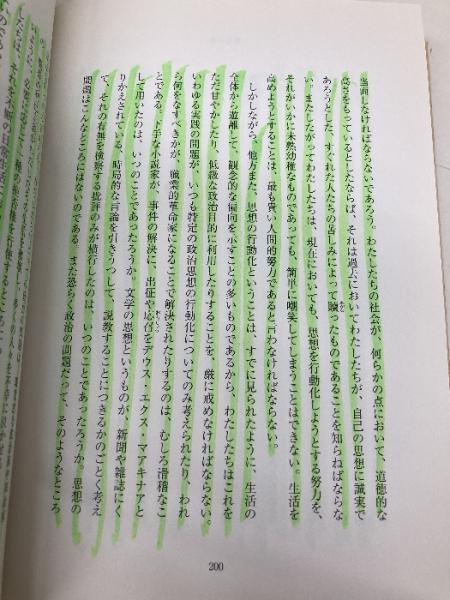 当面しなければならないであろう。わたしたちの社会が、何らかの点において、道徳的な
高さをもっているとしたならば、それは過去においてわたしたちが、自己の思想に誠実で
あろうとした、すぐれた人たちの苦しみによって贖ったものであることを知らねばならな
い。またしたがってわたしたちは、現在においても、思想を行動化しようとする努力を、
それがいかに未熟幼稚なものであっても、簡単に嘲笑してしまうことはできない。生活を
高めようとすることは、最も貴い人間的努力であると言わなければならない。
しかしながら、他方また、思想の行動化ということは、すでに見られたように、生活の
全体から遊離して、観念的な偏向を示すことの多いものであるから、わたしたちはこれを
ただ甘やかしたり、低級な政治目的に利用したりすることを、厳に戒めなければならない。
いわゆる実践の問題が、いつも特定の政治思想の行動化についてのみ考えられたり、われ
ら何をなすべきかが、職業的革命家になることで解決されたりするのは、むしろ滑稽なこ
とである。下手な小説家が、事件の解決に、出征や応召をデウス・エクス・マアキナアと
して用いたのは、いつのことであったろうか。文学の思想というものが、新聞や雑誌にく
りかえされている、時局的な言論を引きうつして、説教することにつきるかのごとく考え
て、それの有無を検察する批評のみが横行したのは、いつのことであったろうか。思想の
問題はこんなところにはないのである。また恐らく政治の問題だって、そのようなところ
200